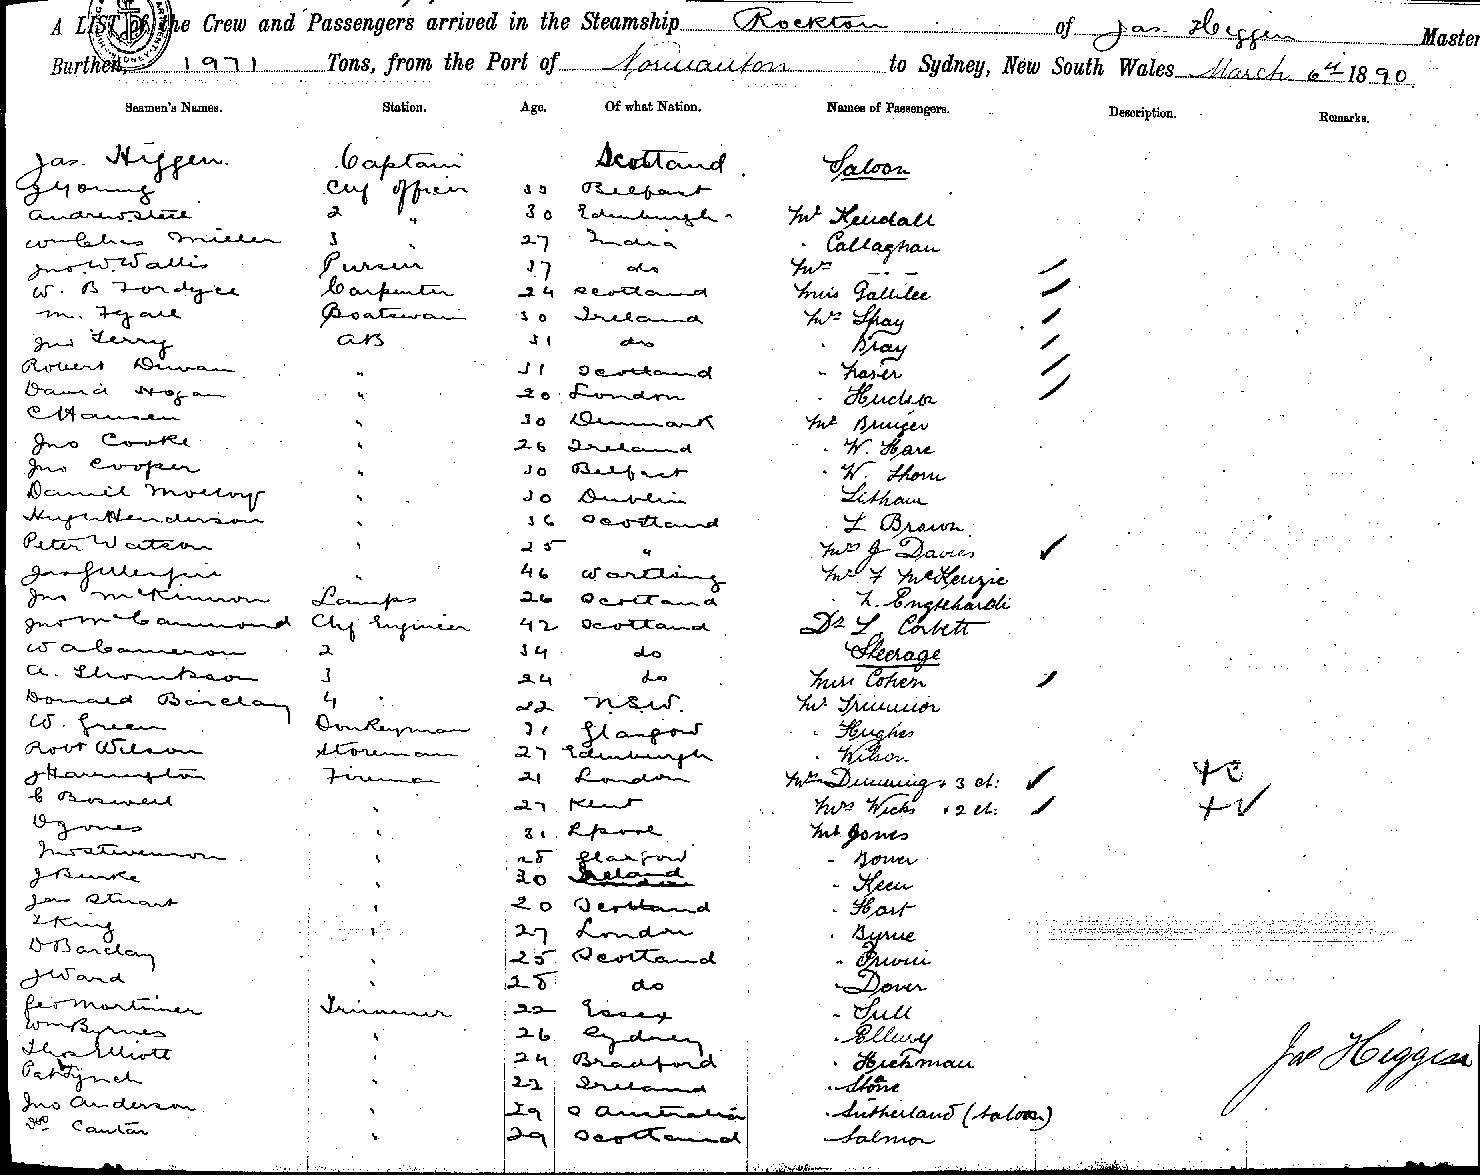 A LIST of the Crew and Passengers arrived in the Steamship Rockton of Jas. Higgen Master
Burthen, 1971 Tons, from the Port of Normanton to Sydney, New South Wales March 6th 1890
Seamen's Names. Station. Age. Of what Nation. Names of Passengers. Description. Remarks.
Jas. Higgen. Captain Scotland Saloon
J Young Chf Officer 33 Belfast
Andrew Steel 2 " 30 Edinburgh Mr Kendall
Wm Chas Miller 3 " 27 India " Callaghan
Jno. W. Wallis Purser 37 do Mrs - - -
W. B Fordyce Carpenter 24 Scotland Miss Gallilee
M. Fyall Boatswain 30 Ireland Mrs Spray
Jno Terry AB 31 do " Bray
Robert Duncan " 31 Scotland " Fraser
David Hogan " 20 London " Hudson
C Hansen " 30 Denmark Mr Bruiger
Jno Cooke " 26 Ireland " W. Hare
Jno Cooper " 30 Belfast " W. Thorn
Daniel Molloy " 30 Dublin " Letham
Hugh Henderson " 36 Scotland " L Brown
Peter Watson " 25 " Mrs J Davies
Jas Gillespie " 46 Mr F McKenzie
Jno McKinnon Lamps 26 Scotland " L. Englehardt
Jno McCammond Chf Engineer 42 Scotland Dr L. Corbett
W A Cameron 2 34 do Steerage
A. Thompson 3 24 do Miss Cohen
Donald Barclay 4 " 22 N.S.W. Mr Trimmor
W. Green Donkeyman 31 Glasgow " Hughes
Robt Wilson Storeman 27 Edinburgh " Wilson
J Harrington Fireman 21 London Mrs Dimming + 3 ch:
C Boswell " 27 Kent Mrs Wicks + 2 ch:
D Jones " 31 Lpool Mr Jones
Jno Stevenson " 28 Glasgow " Bower
J Burke " 30 Ireland " Keen
Jas Stuart " 20 Scotland " Hart
T King " 27 London " Byrne
D Barclay " 25 Scotland " Irwin
J Ward " 28 do " Dover
Geo Mortimer Trimmer 22 Essex " Tull
Wm Byrnes " 26 Sydney " Ellery
Thos Elliott " 24 Bradford " Hickman
Pat Lynch " 22 Ireland " Stone
Jno Anderson " 29 S Australia " Sutherland (Saloon)
Cantar " 29 Scotland " Salmon
Jas Higgen